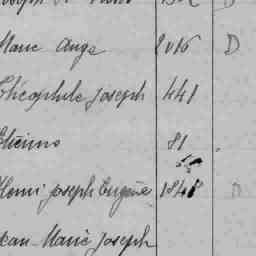 Marie Ange 2016 D
Théophile Joseph 441
Etienne 81
Henri Joseph Eugène 1848 D
Jean Marie Joseph